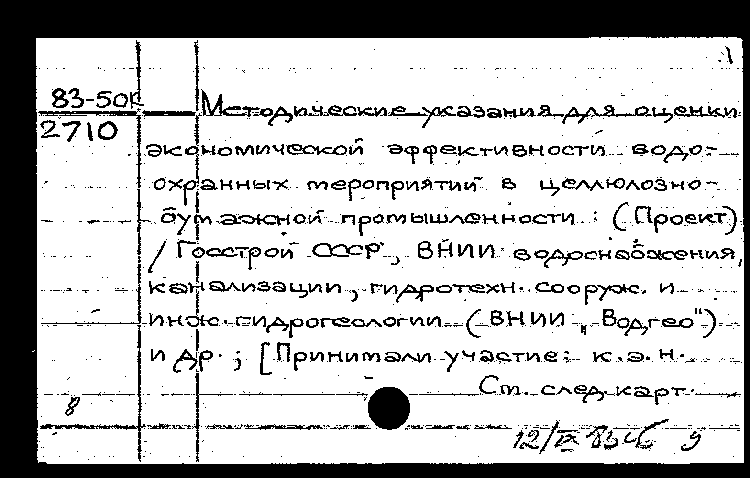 1
83-50К Методические указания для оценки
2710
экономической эффективности водо-
охранных мероприятий в целлюлозно-
бумажной промышленности : (Проект)
/ Госстрой СССР, ВНИИ водоснабжения,
канализации, гидротехн. сооруж. и
инж. гидрогеологии (ВНИИ „Водгео")
и др. ; [Принимали участие: к.э.н.
См. след. карт.
8
12/IX 83